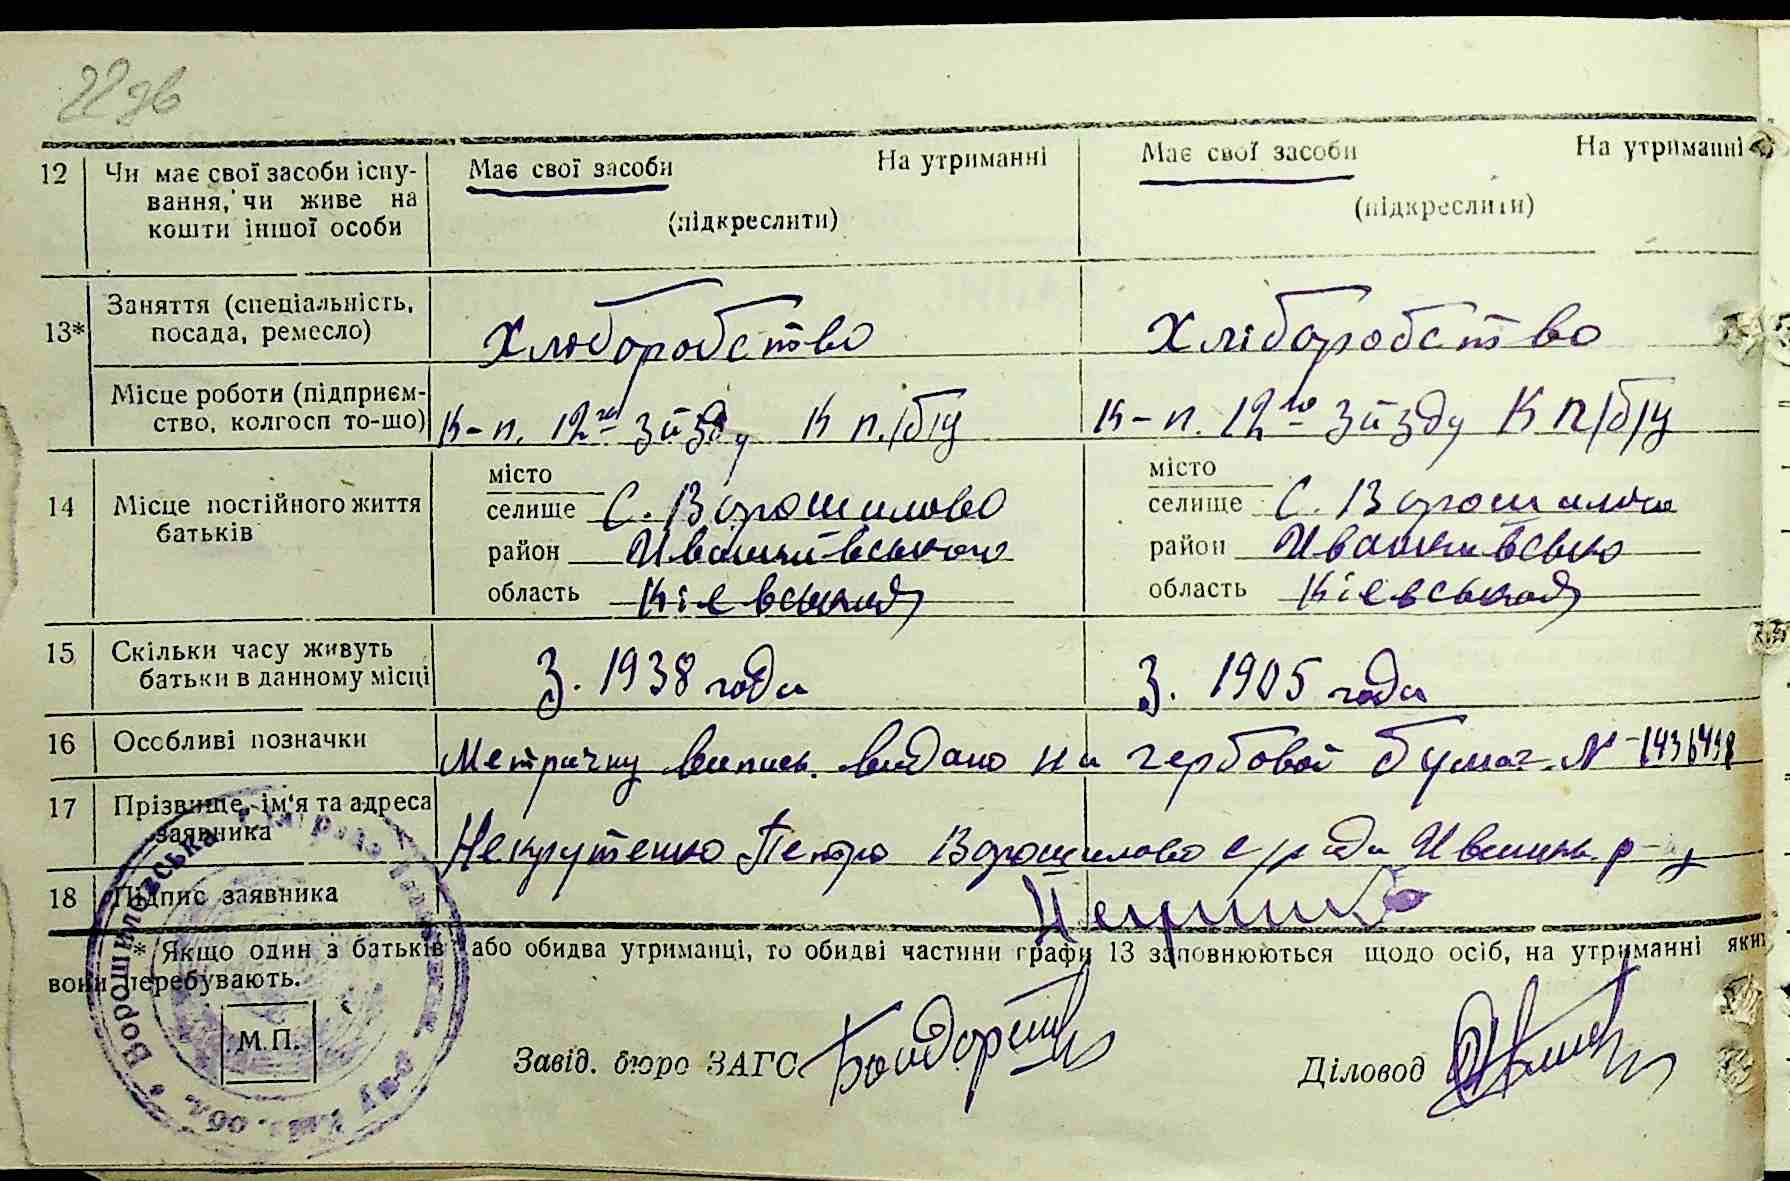 22 зв
12 Чи має свої засоби існу- Має свої засоби На утриманні Має свої засоби На утриманні
вання, чи живе на (підкреслити) (підкреслити)
кошти іншої особи
Заняття (спеціальність,
13* посада, ремесло) Хліборобство Хліборобство
Місце роботи (підприєм-
ство, колгосп то-що) К-п. 12го зйзду К п/б/у К-п. 12го зйзду К п/б/у
місто місто
14 Місце постійного життя селище С. Ворошилово селище С. Ворошилово
батьків район Ивашківського район
область Кієвськая область Кієвськая
15 Скільки часу живуть
батьки в данному місці З. 1938 года З. 1905 года
16 Особливі позначки Метричну выпись видано на гербовой бумаг. №
17 Прізвище, ім'я та адреса
заявника Некрутенко Петро Ворошилово с/рада р-ну
18 Підпис заявника
* Якщо один з батьків або обидва утриманці, то обидві частини графи 13 заповнюються щодо осіб, на утриманні яких
вони перебувають.
М.П.
Завід. бюро ЗАГС Діловод
Ворошиловська
обл.